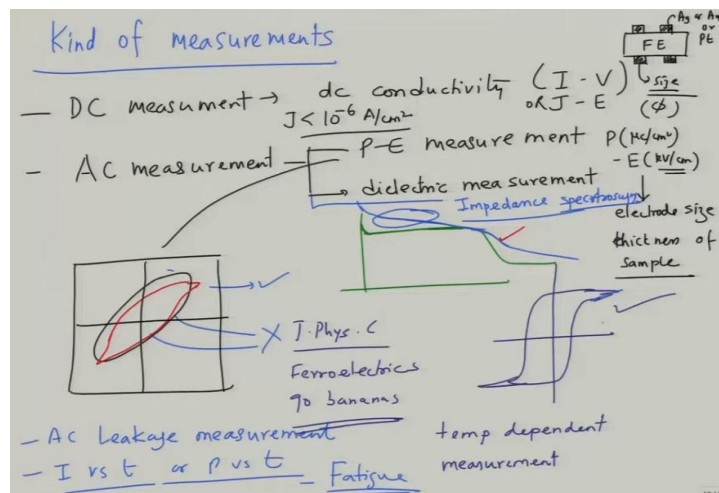 Kind of measurements
Ag or Au
or
Pt
FE
size
(φ)
– DC measument → dc conductivity (I - V)
OR J - E
J < 10⁻⁶ A/cm²
– AC measurement – P-E measurement P(μc/cm²)
- E(kV/cm)
→ dielectric measurement
Impedance spectroscopy
electrode size
thickness of
sample
✓
X J. Phys. C
Ferroelectrics
go bananas
– AC Leakage measurement
– I vs t or P vs t – Fatigue
temp dependent
measurement